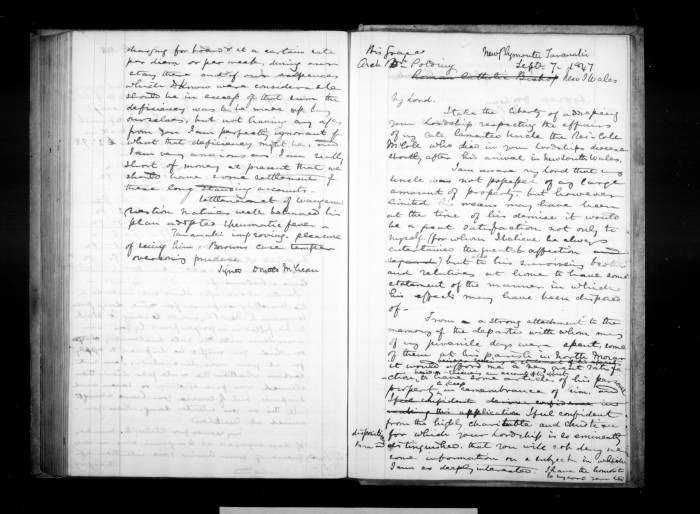 charging for board &c at a certain rate
per diem or per week, during our
stay there and of our expences
which I know were considerable
should be in excess of that sum the
deficiency was to be made up by
ourselves, but not having any
from you I am perfectly ignorant of
what that deficiency might be, and
I am very anxious as I am really
short of money at present that we
should have some settlement of
these long standing accounts.
Settlement of
natives well balanced his
plan adopted rheumatic fever
Taranaki improving. pleasure
of seeing him, Browns case temper
overcoming prudence
Signed Donald McLean
His Grace
New Plymouth Taranaki
Arch Bp Polding
Sept. 7 1847
Roman Catholic Bishop New S Wales
My Lord.
I take the liberty of addressing
your Lordship respecting the affairs
of my late lamented Uncle the Rev. Cole
McCole who died in your Lordships diocese
shortly after his arrival in New South Wales.
I am aware my Lord that my
Uncle was not possessed of any large
amount of property, but however
limited his means may have been
at the time of his demise it would
be a great satisfaction not only to
myself (for whom I believe he always
entertained the greatest affection
regard) but to his surviving
and relatives at home to have some
statement of the manner in which
his effects may have been disposed
of.
From a strong attachment to the
memory of the departed with whom many
of my juvenile days were spent, some
of them at his parish in North Morar
it would afford me a great satisfa
ction, to have some articles of his
propert to keep in remembrance of him.
making this application I feel confident
from the highly charitable and christian
disposition for which your Lordship is so eminently
distinguished that you will not deny me
some information on a subject in which
I am so deeply interested. I have the honor to